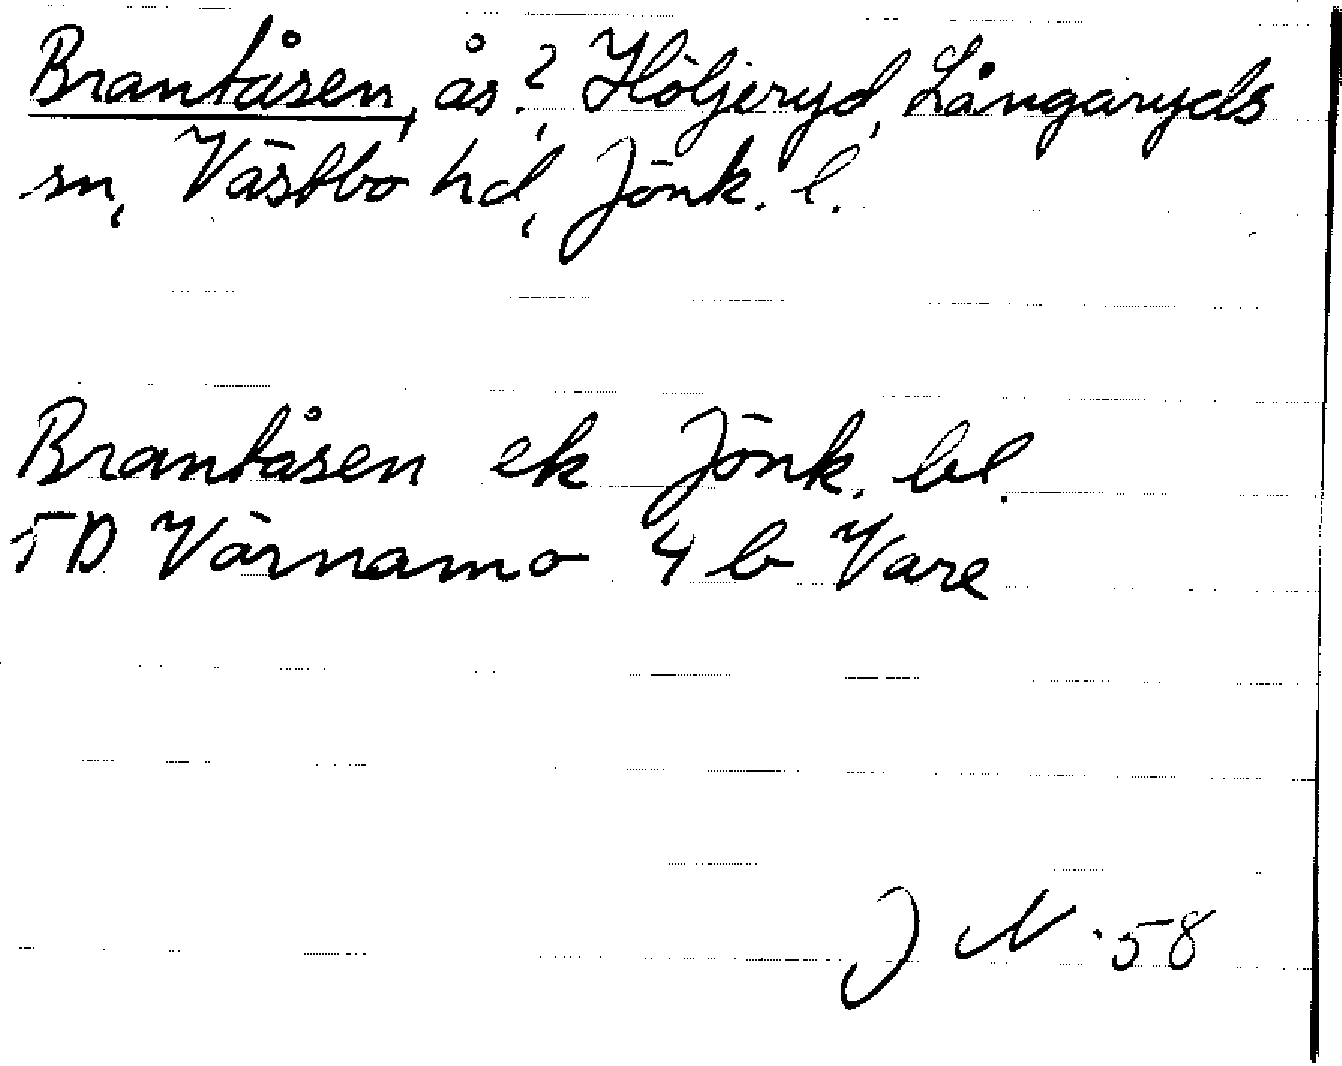 Brantåsen, ås?, Höljeryd, Långaryds
sn, Västbo hd, Jönk. l.
Brantåsen ek Jönk. bl.
5D Värnamo 4 b Vare
J N ·58